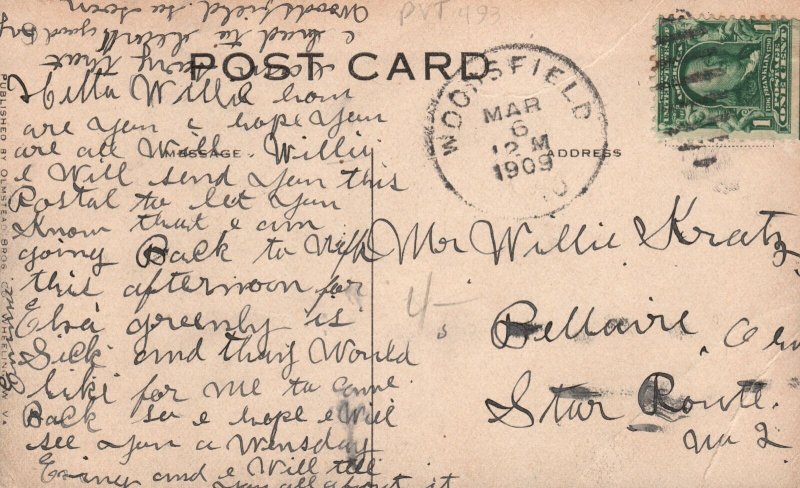 PVT 493
POST CARD
MESSAGE
ADDRESS
Hello Willie how
are you i hope you
are all Well. Willie
e Will send you this
Postal to let you
Know that e am
going Back to
this afternoon for
greenly is
Sick and thay Would
like for me to come
Back so e hope e Will
see you a Wensday
Evning and e Will tell
you all about it
sorry that
e had to
Woodsfield so soon
good By
WOODSFIELD
MAR
6
12 M
1909
O
UNITED STATES OF AMERICA
FRANKLIN
POSTAGE
1 ONE CENT 1
Mr Willie Kratz
Bellaire
Star Route.
No 2
4/-
s
PUBLISHED BY OLMSTEAD BROS. CO. WHEELING, W. VA